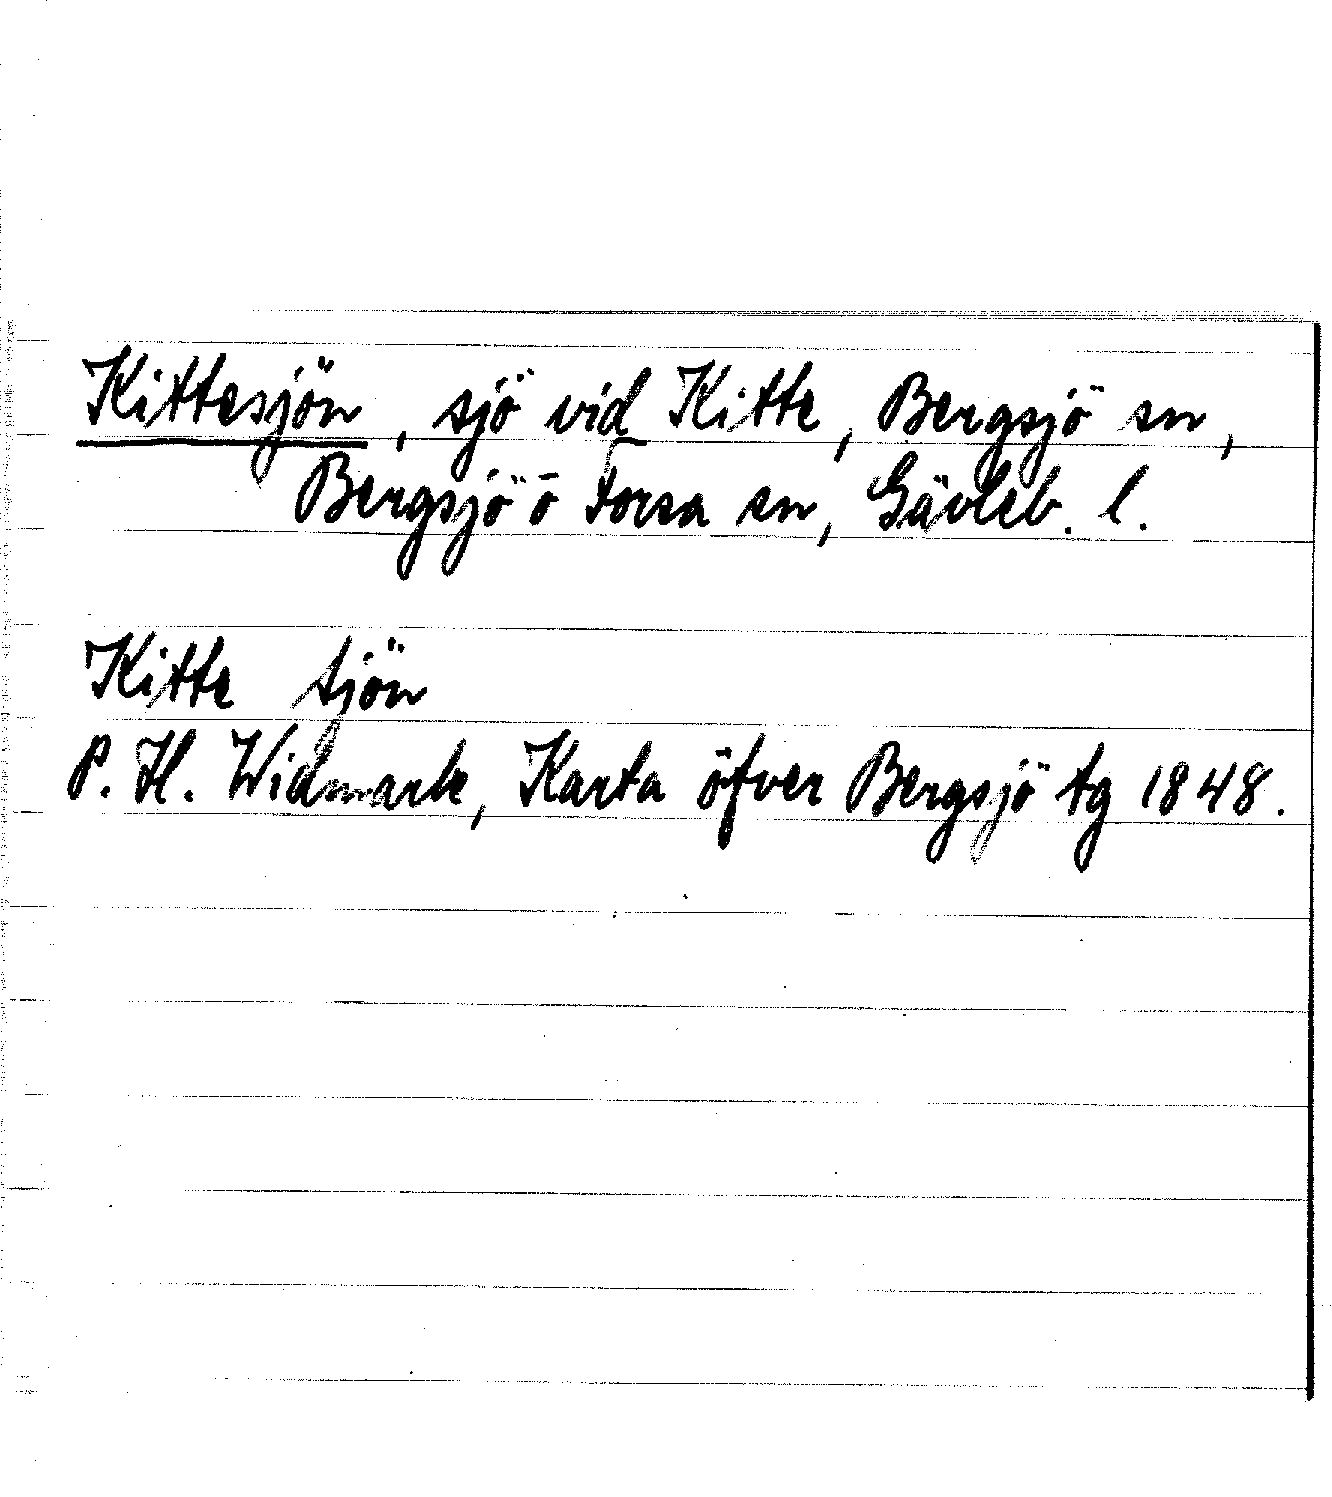 Kittesjön, sjö vid Kitte, Bergsjö sn,
Bergsjö o Forsa sn, Gävleb. l.
Kitte tjön
P. H. Widmark, Karta öfver Bergsjö tg 1848.